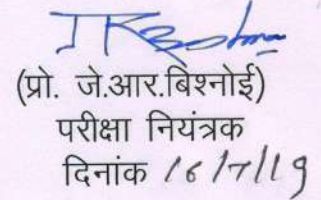 (प्रो. जे.आर.बिश्नोई)
परीक्षा नियंत्रक
दिनांक 16/7/19